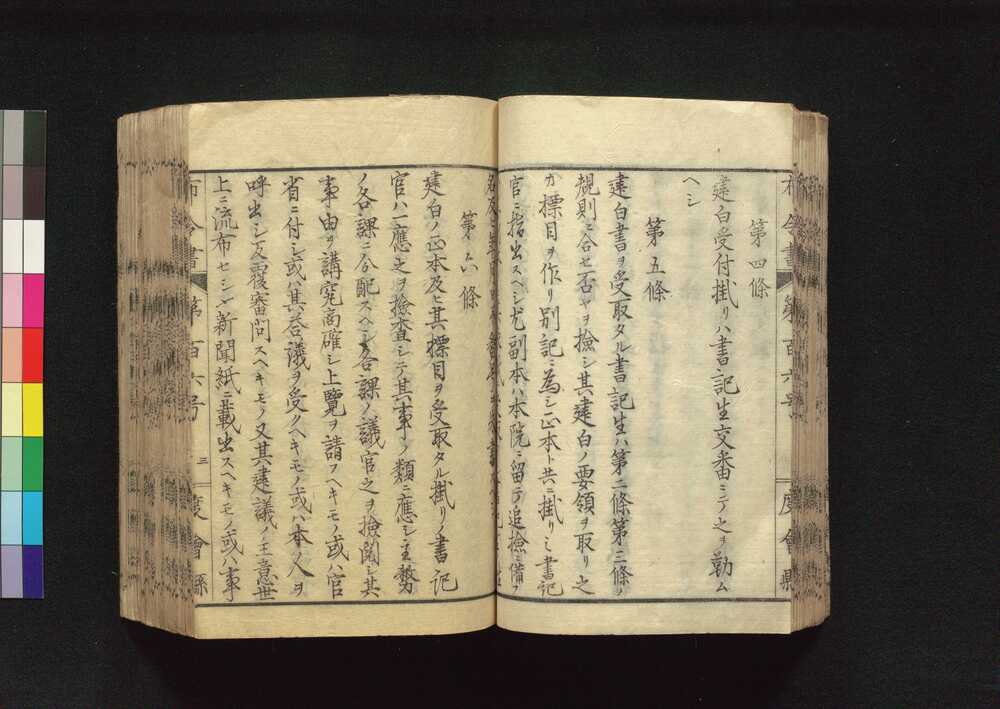 第四條
建白受付掛リハ書記生交番ニテ之ヲ勤ム
ヘシ
第五條
建白書ヲ受取タル書記生ハ第二條第三條ノ
規則ニ合セ否ヤヲ撿シ其建白ノ要領ヲ取リ之
カ標目ヲ作リ別記ニ為シ正本ト共ニ掛リノ書記
官ニ指出スヘシ尤副本ハ本院ニ留テ追撿ニ備フ
第六條
建白ノ正本及ヒ其標目ヲ受取タル掛リノ書記
官ハ一應之ヲ撿査シテ其事ノ類ニ應シ主務
ノ各課ニ分配スヘシ各課ノ議官之ヲ撿閲シ其
事由ヲ講究商確シ上覽ヲ請フヘキモノ或ハ官
省ニ付シ或ハ其答議ヲ受クヘキモノ或ハ本人ヲ
呼出シ反覆審問スヘキモノ又其建議ノ主意世
上ニ流布セシメ新聞紙ニ載出スヘキモノ或ハ事
布令書 第百六号 三 度會縣
布令書 第百六号 度會縣